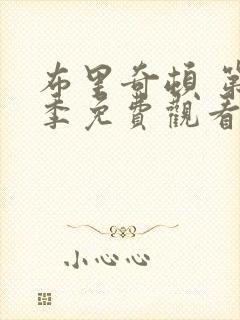 布里奇頓 第
季免費觀看
小心心